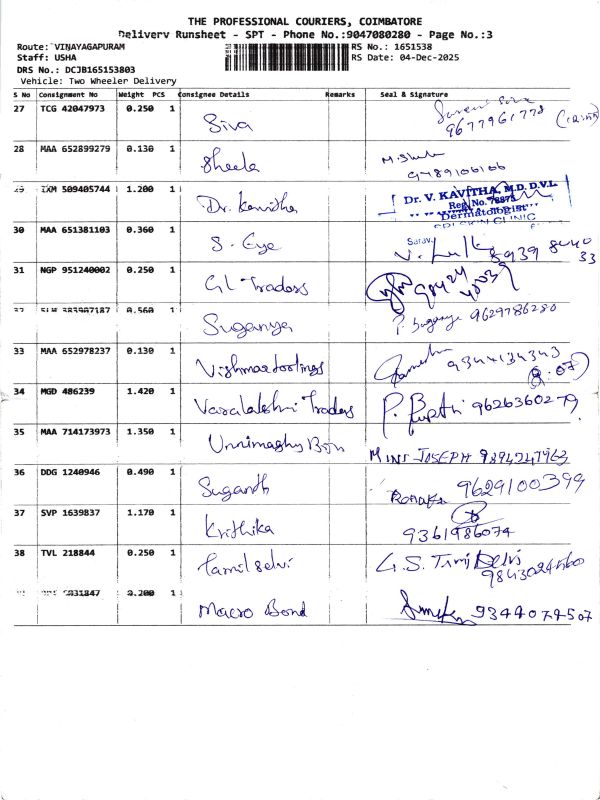 THE PROFESSIONAL COURIERS, COIMBATORE
Delivery Runsheet - SPT - Phone No.:9047080280 - Page No.:3
Route: VINAYAGAPURAM
RS No.: 1651538
Staff: USHA
RS Date: 04-Dec-2025
DRS No.: DCJB165153803
Vehicle: Two Wheeler Delivery
S No Consignment No Weight PCS Consignee Details Remarks Seal & Signature
27 TCG 42047973 0.250 1 Siva 9677961778
28 MAA 652899279 0.130 1 Sheela 9789106166
29 IXM 509405744 1.200 1 Dr. Kavitha Dr. V. KAVITHA, M.D. D.V.L
Reg. No. 78875
Dermatologist
SKIN CLINIC
30 MAA 651381103 0.360 1 S. Eye Sarav. 89398440
33
31 NGP 951240002 0.250 1 GL Traders 98424
40037
0.560 1 Suganya P. Suganya 9629786280
33 MAA 652978237 0.130 1 9344134343
34 MGD 486239 1.420 1 Varalakshmi Traders 9626360279
35 MAA 714173973 1.350 1 MINI JOSEPH 9894247963
36 DDG 1240946 0.490 1 Suganth 9629100399
37 SVP 1639837 1.170 1 Krithika
9361986074
38 TVL 218844 0.250 1 Tamil selvi G.S.
0.200 1 Macro Bond 9344074507